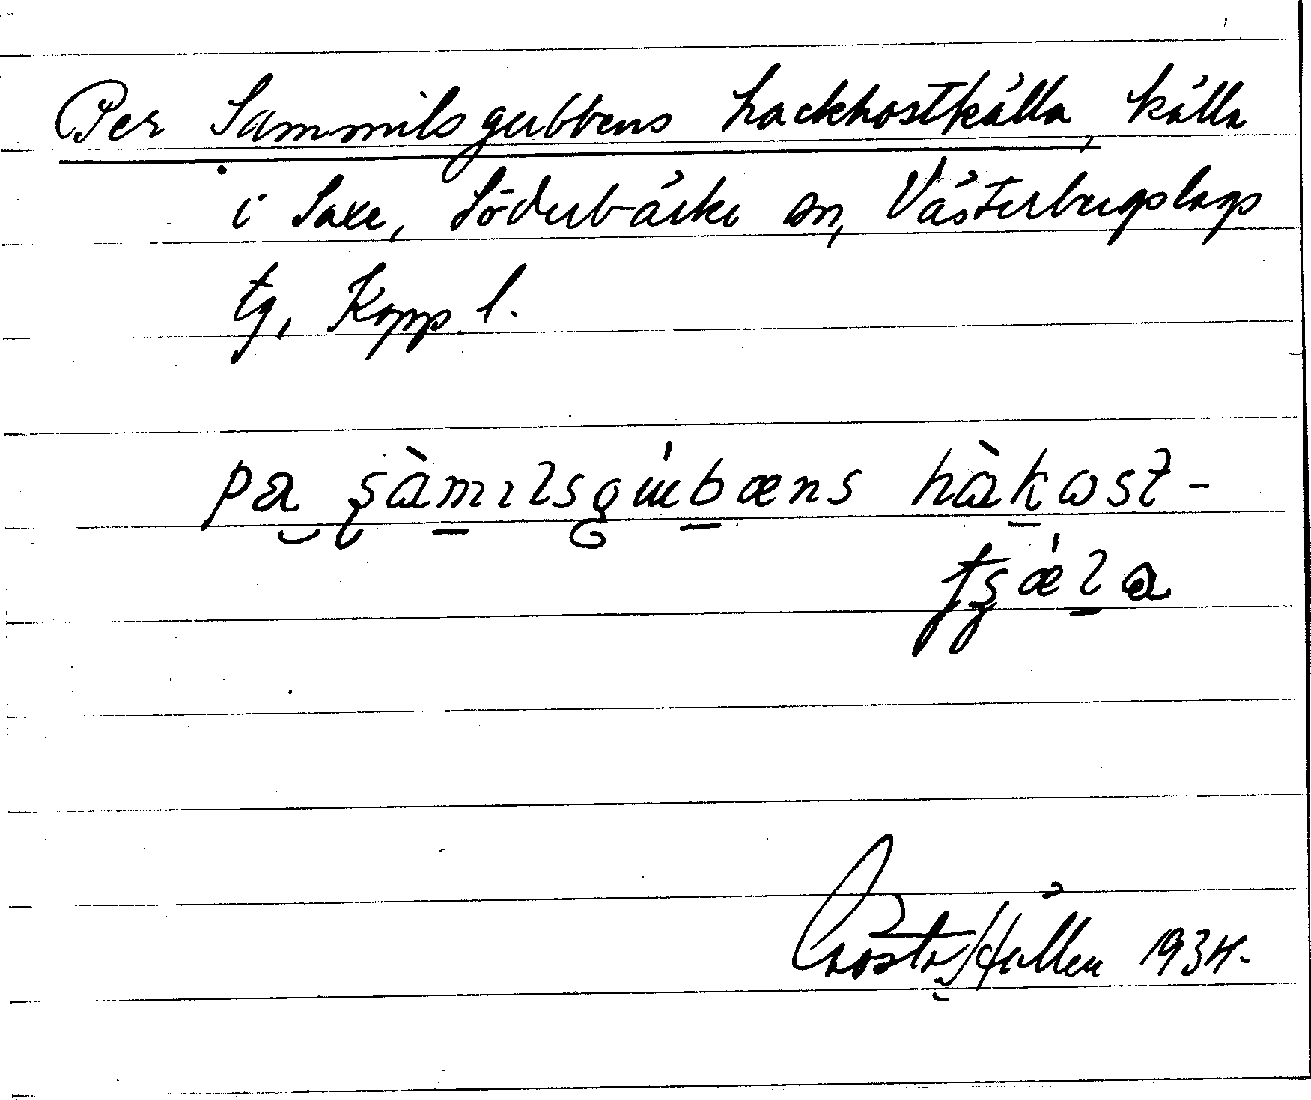 Per Sammilsgubbens hackhostkälla, källa
i Saxe, Söderbärke sn, Västerbergslags
tg, Kopp l.
pa sàmılsgúbæns hàkɷst-
tʂǽla
1934.